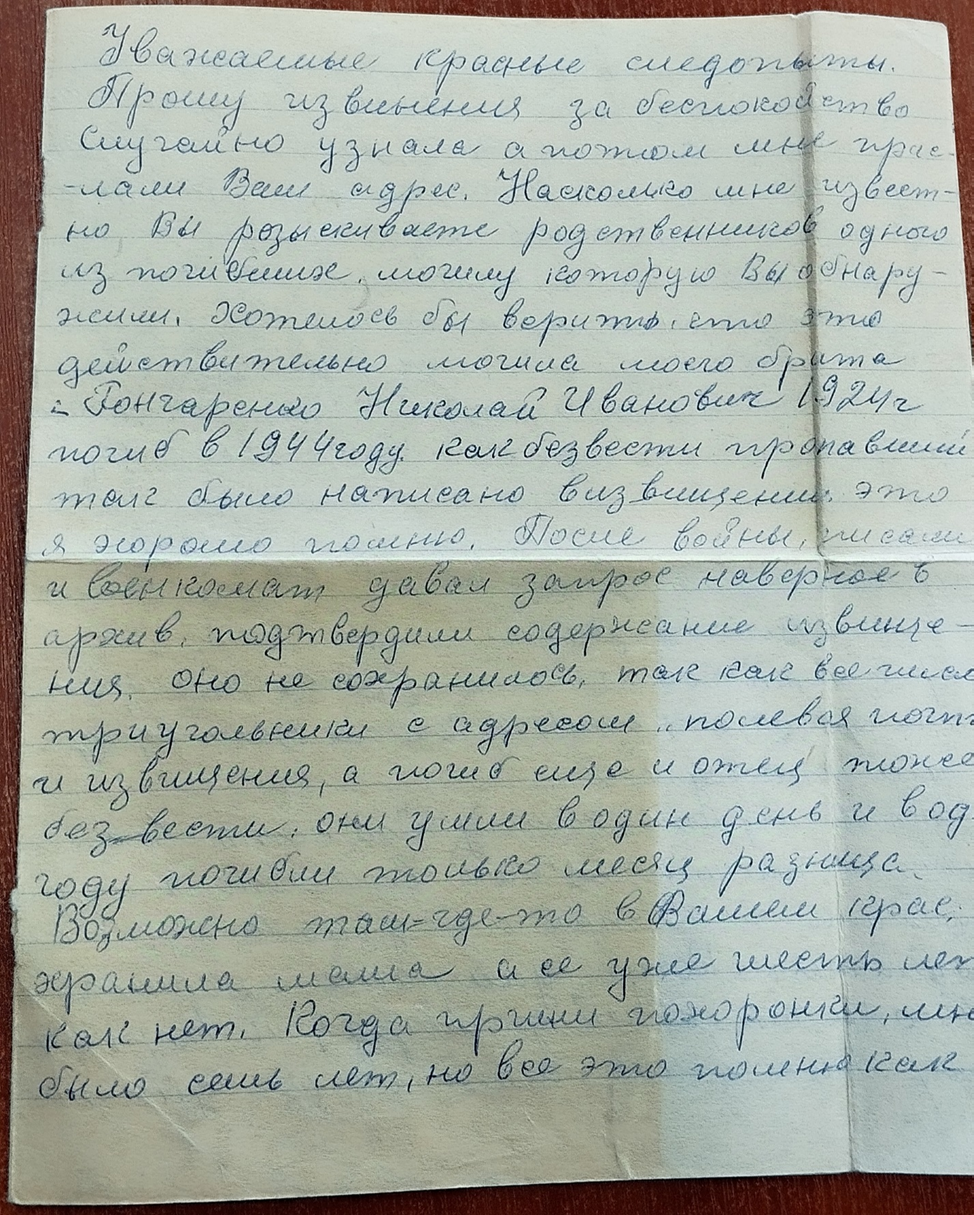 Уважаемые красные следопыты.
Прошу извинения за беспокойство
Случайно узнала а потом мне прис-
-лали Ваш адрес. Насколько мне извест-
но Вы розыскиваете родственников одного
из погибших, могилу которую Вы обнару-
жили. Хотелось бы верить, что это
действительно могила моего брата
- Гончаренко Николай Иванович 1924г
погиб в 1944 году как безвести пропавший
так было написано в извищении, это
я хорошо помню. После войны, писали
и военкомат давал запрос наверное в
архив, подтвердили содержание извище-
ния, оно не сохранилось, так как все
треугольники с адресом „полевая почт
и извищения, а погиб еще и отец тоже
без вести, они ушли в один день и в од
году погибли только месяц разница.
Возможно там-где-то в Вашем крае,
хранила мама а ее уже шесть лет
как нет. Когда пришли похоронки, мне
было семь лет, но все это помню как